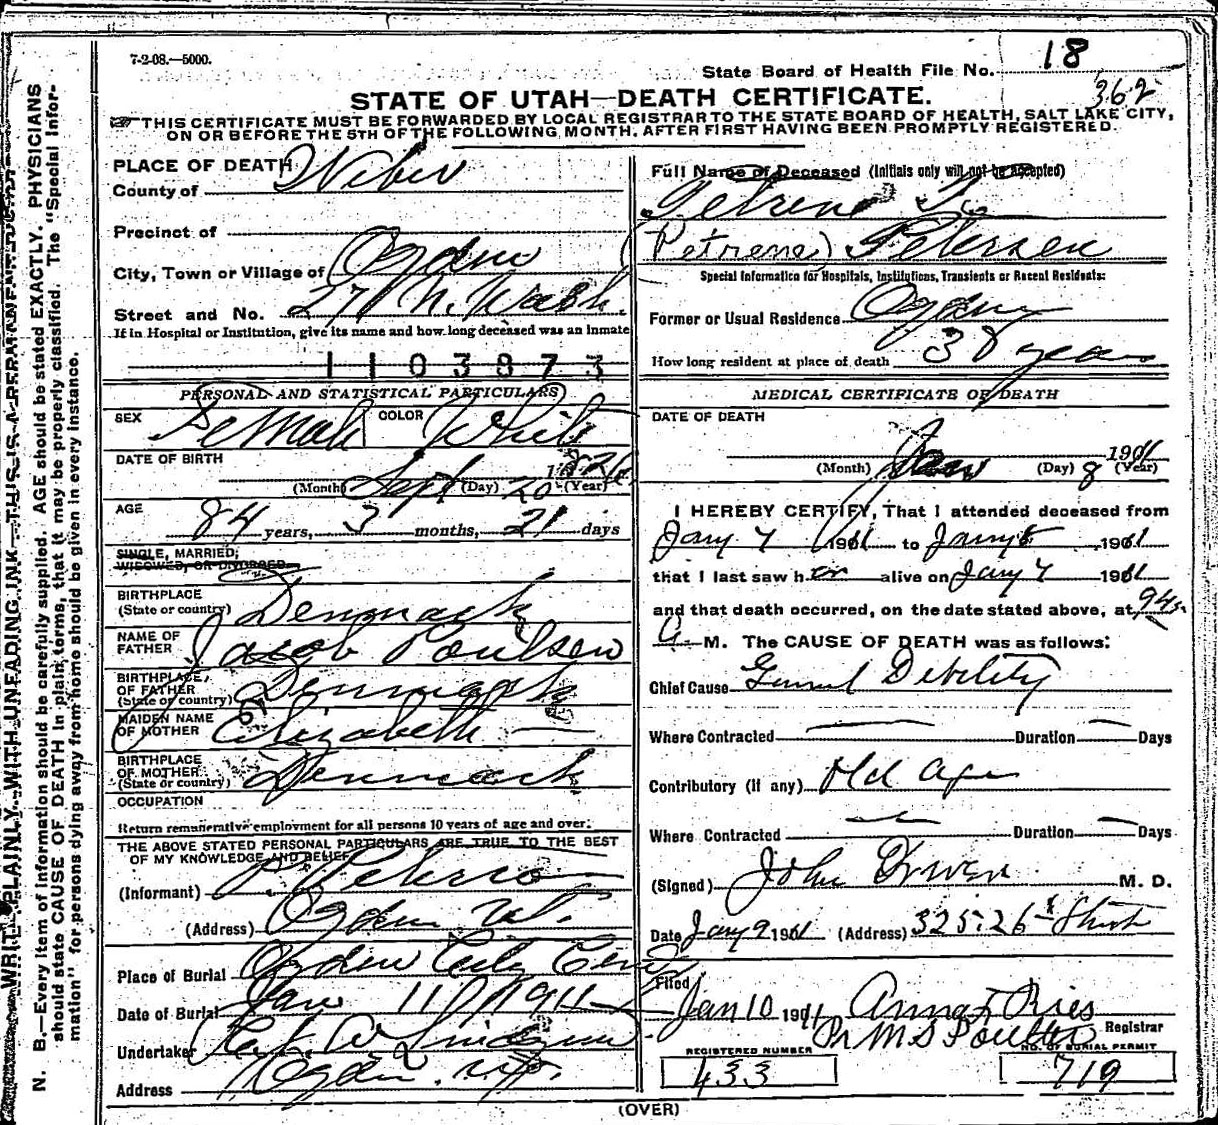 7-2-08.—5000.
State Board of Health File No. 18
362
STATE OF UTAH—DEATH CERTIFICATE.
THIS CERTIFICATE MUST BE FORWARDED BY LOCAL REGISTRAR TO THE STATE BOARD OF HEALTH, SALT LAKE CITY,
ON OR BEFORE THE 5TH OF THE FOLLOWING MONTH. AFTER FIRST HAVING BEEN PROMPTLY REGISTERED.
WRITE PLAINLY, WITH UNFADING INK—THIS IS A PERMANENT
N. B.—Every item of information should be carefully supplied. AGE should be stated EXACTLY. PHYSICIANS
should state CAUSE OF DEATH in plain terms, that it may be properly classified. The "Special Infor-
mation" for persons dying away from home should be given in every instance.
PLACE OF DEATH
County of Weber
Precinct of
City, Town or Village of Ogden
Street and No. 271 N. Wash.
If in Hospital or Institution, give its name and how long deceased was an Inmate
1103873
PERSONAL AND STATISTICAL PARTICULARS
SEX Female COLOR White
DATE OF BIRTH
(Month) Sept (Day) 20 (Year) 1826
AGE
84 years, 3 months, 21 days
SINGLE, MARRIED,
WIDOWED, OR DIVORCED
BIRTHPLACE
(State or country) Denmark
NAME OF
FATHER Jacob Poulsen
BIRTHPLACE,
OF FATHER
(State or country) Denmark
MAIDEN NAME
OF MOTHER Elizabeth —
BIRTHPLACE
OF MOTHER
(State or country) Denmark
OCCUPATION
Return remunerative employment for all persons 10 years of age and over.
THE ABOVE STATED PERSONAL PARTICULARS ARE TRUE TO THE BEST
OF MY KNOWLEDGE AND BELIEF
(Informant) P. Peterson
(Address) Ogden Ut.
Place of Burial Ogden City Cem
Date of Burial Jan 11 1911
Undertaker
Address Ogden. Ut.
Full Name of Deceased (Initials only will not be accepted)
(Petrene) Petersen
Special Information for Hospitals, Institutions, Transients or Recent Residents:
Former or Usual Residence Ogden
How long resident at place of death 38 years
MEDICAL CERTIFICATE OF DEATH
DATE OF DEATH
(Month) Jan (Day) 8 1911 (Year)
I HEREBY CERTIFY, That I attended deceased from
Jany 7 1911 to Jany 8 1911
that I last saw her alive on Jany 7 1911
and that death occurred, on the date stated above, at 945
A M. The CAUSE OF DEATH was as follows:
Chief Cause General Debility
Where Contracted — Duration — Days
Contributory (if any) Old Age
Where Contracted — Duration — Days
(Signed) John Driver M. D.
Date Jany 9 1911 (Address) 325-26th Street
Filed
Jan 10 1911 Anna F. Ries
Pr M S Poulter Registrar
REGISTERED NUMBER
433
NO. OF BURIAL PERMIT
719
(OVER)